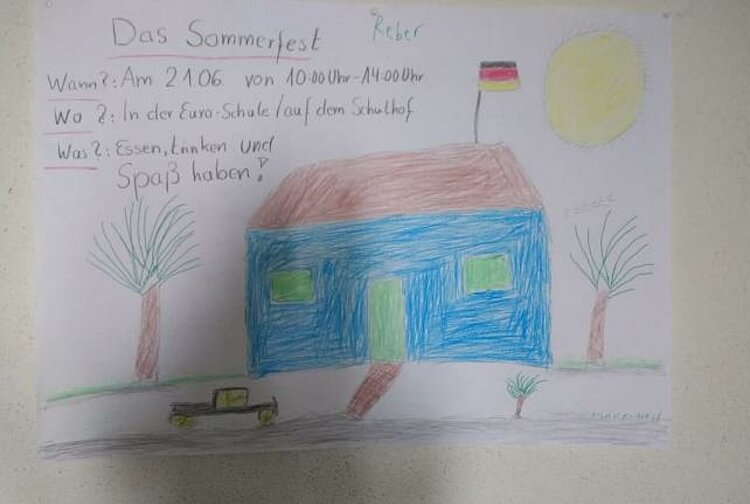 Das Sommerfest
Reber
Wann?: Am 21.06. von 10:00 Uhr - 14:00 Uhr
Wo?: In der Euro-Schule / auf dem Schulhof
Was?: Essen, trinken und
Spaß haben!